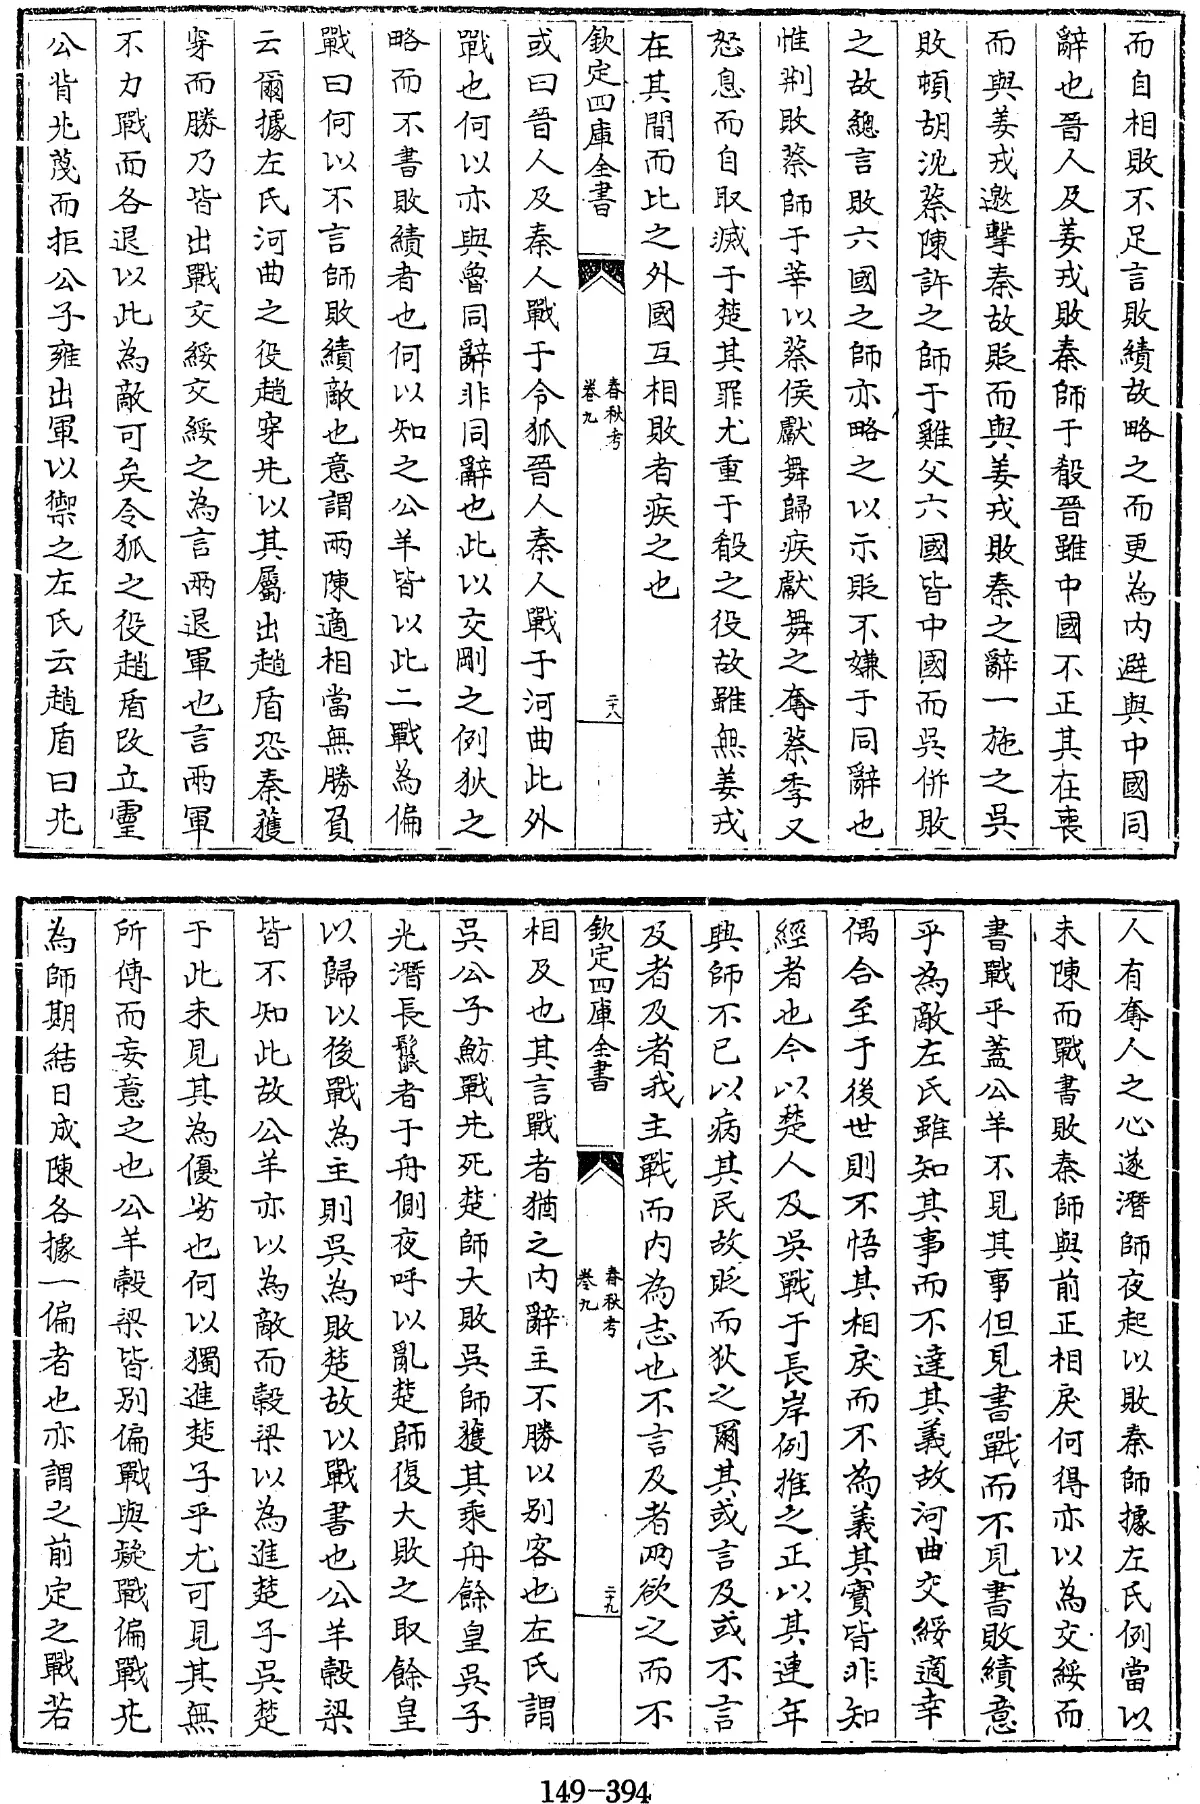 而自相敗不足言敗績故略之而更為内避與中國同
辭也晉人及姜戎敗秦師于殽晉雖中國不正其在喪
而與姜戎邀擊秦故貶而與姜戎敗秦之辭一施之吳
敗頓胡沈蔡陳許之師于雞父六國皆中國而吳併敗
之故總言敗六國之師亦略之以示貶不嫌于同辭也
惟荆敗蔡師于莘以蔡侯獻舞歸疾獻舞之奪蔡季又
怒息而自取滅于楚其罪尤重于殽之役故雖無姜戎
在其間而比之外國互相敗者疾之也
欽定四庫全書
春秋考
卷九
二十八
或曰晉人及秦人戰于令狐晉人秦人戰于河曲此外
戰也何以亦與魯同辭非同辭也此以交剛之例狄之
略而不書敗績者也何以知之公羊皆以此二戰為偏
戰曰何以不言師敗績敵也意謂兩陳適相當無勝負
云爾據左氏河曲之役趙穿先以其屬出趙盾恐秦獲
穿而勝乃皆出戰交綏交綏之為言兩退軍也言兩軍
不力戰而各退以此為敵可矣令狐之役趙盾改立靈
公背先蔑而拒公子雍出軍以禦之左氏云趙盾曰先
人有奪人之心遂潛師夜起以敗秦師據左氏例當以
未陳而戰書敗秦師與前正相戾何得亦以為交綏而
書戰乎蓋公羊不見其事但見書戰而不見書敗績意
乎為敵左氏雖知其事而不達其義故河曲交綏適幸
偶合至于後世則不悟其相戾而不為義其實皆非知
經者也今以楚人及吳戰于長岸例推之正以其連年
興師不已以病其民故貶而狄之爾其或言及或不言
及者及者我主戰而内為志也不言及者兩欲之而不
欽定四庫全書
春秋考
卷九
二十九
相及也其言戰者猶之内辭主不勝以别客也左氏謂
吳公子魴戰先死楚師大敗吳師獲其乘舟餘皇吳子
光潛長鬛者于舟側夜呼以亂楚師復大敗之取餘皇
以歸以後戰為主則吳為敗楚故以戰書也公羊榖梁
皆不知此故公羊亦以為敵而榖梁以為進楚子吳楚
于此未見其為優劣也何以獨進楚子乎尤可見其無
所傳而妄意之也公羊榖梁皆别偏戰與疑戰偏戰先
為師期結日成陳各據一偏者也亦謂之前定之戰若
149-394